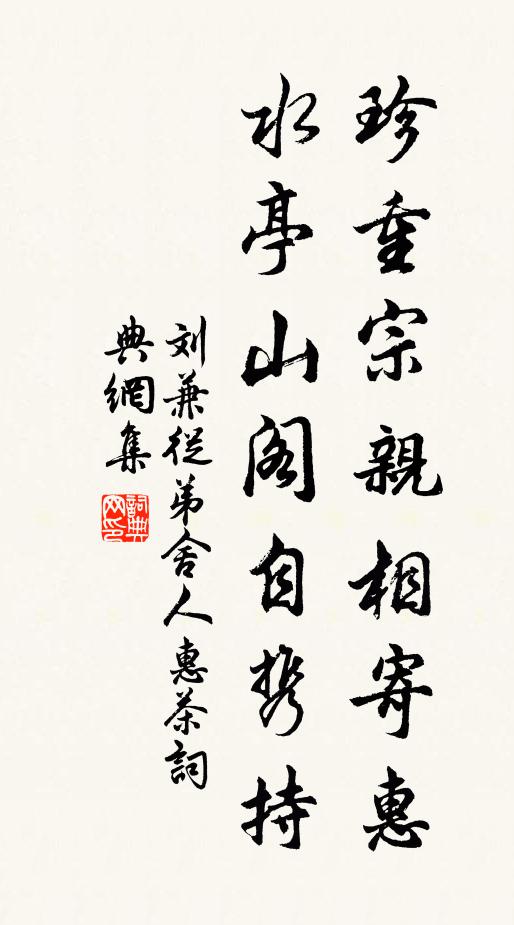 珍重宗親相寄惠
水亭山阁自携持
刘兼從弟舍人惠茶詞
典網集
詞典网印